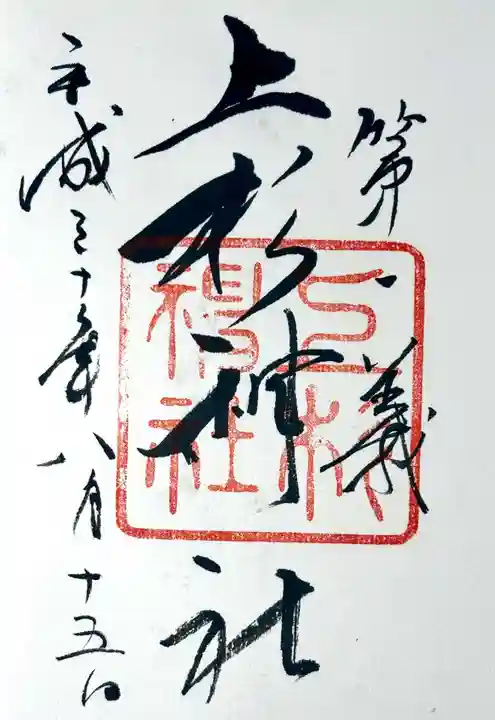 第一義
上杉神社
平成三十年八月十五日
上杉神社